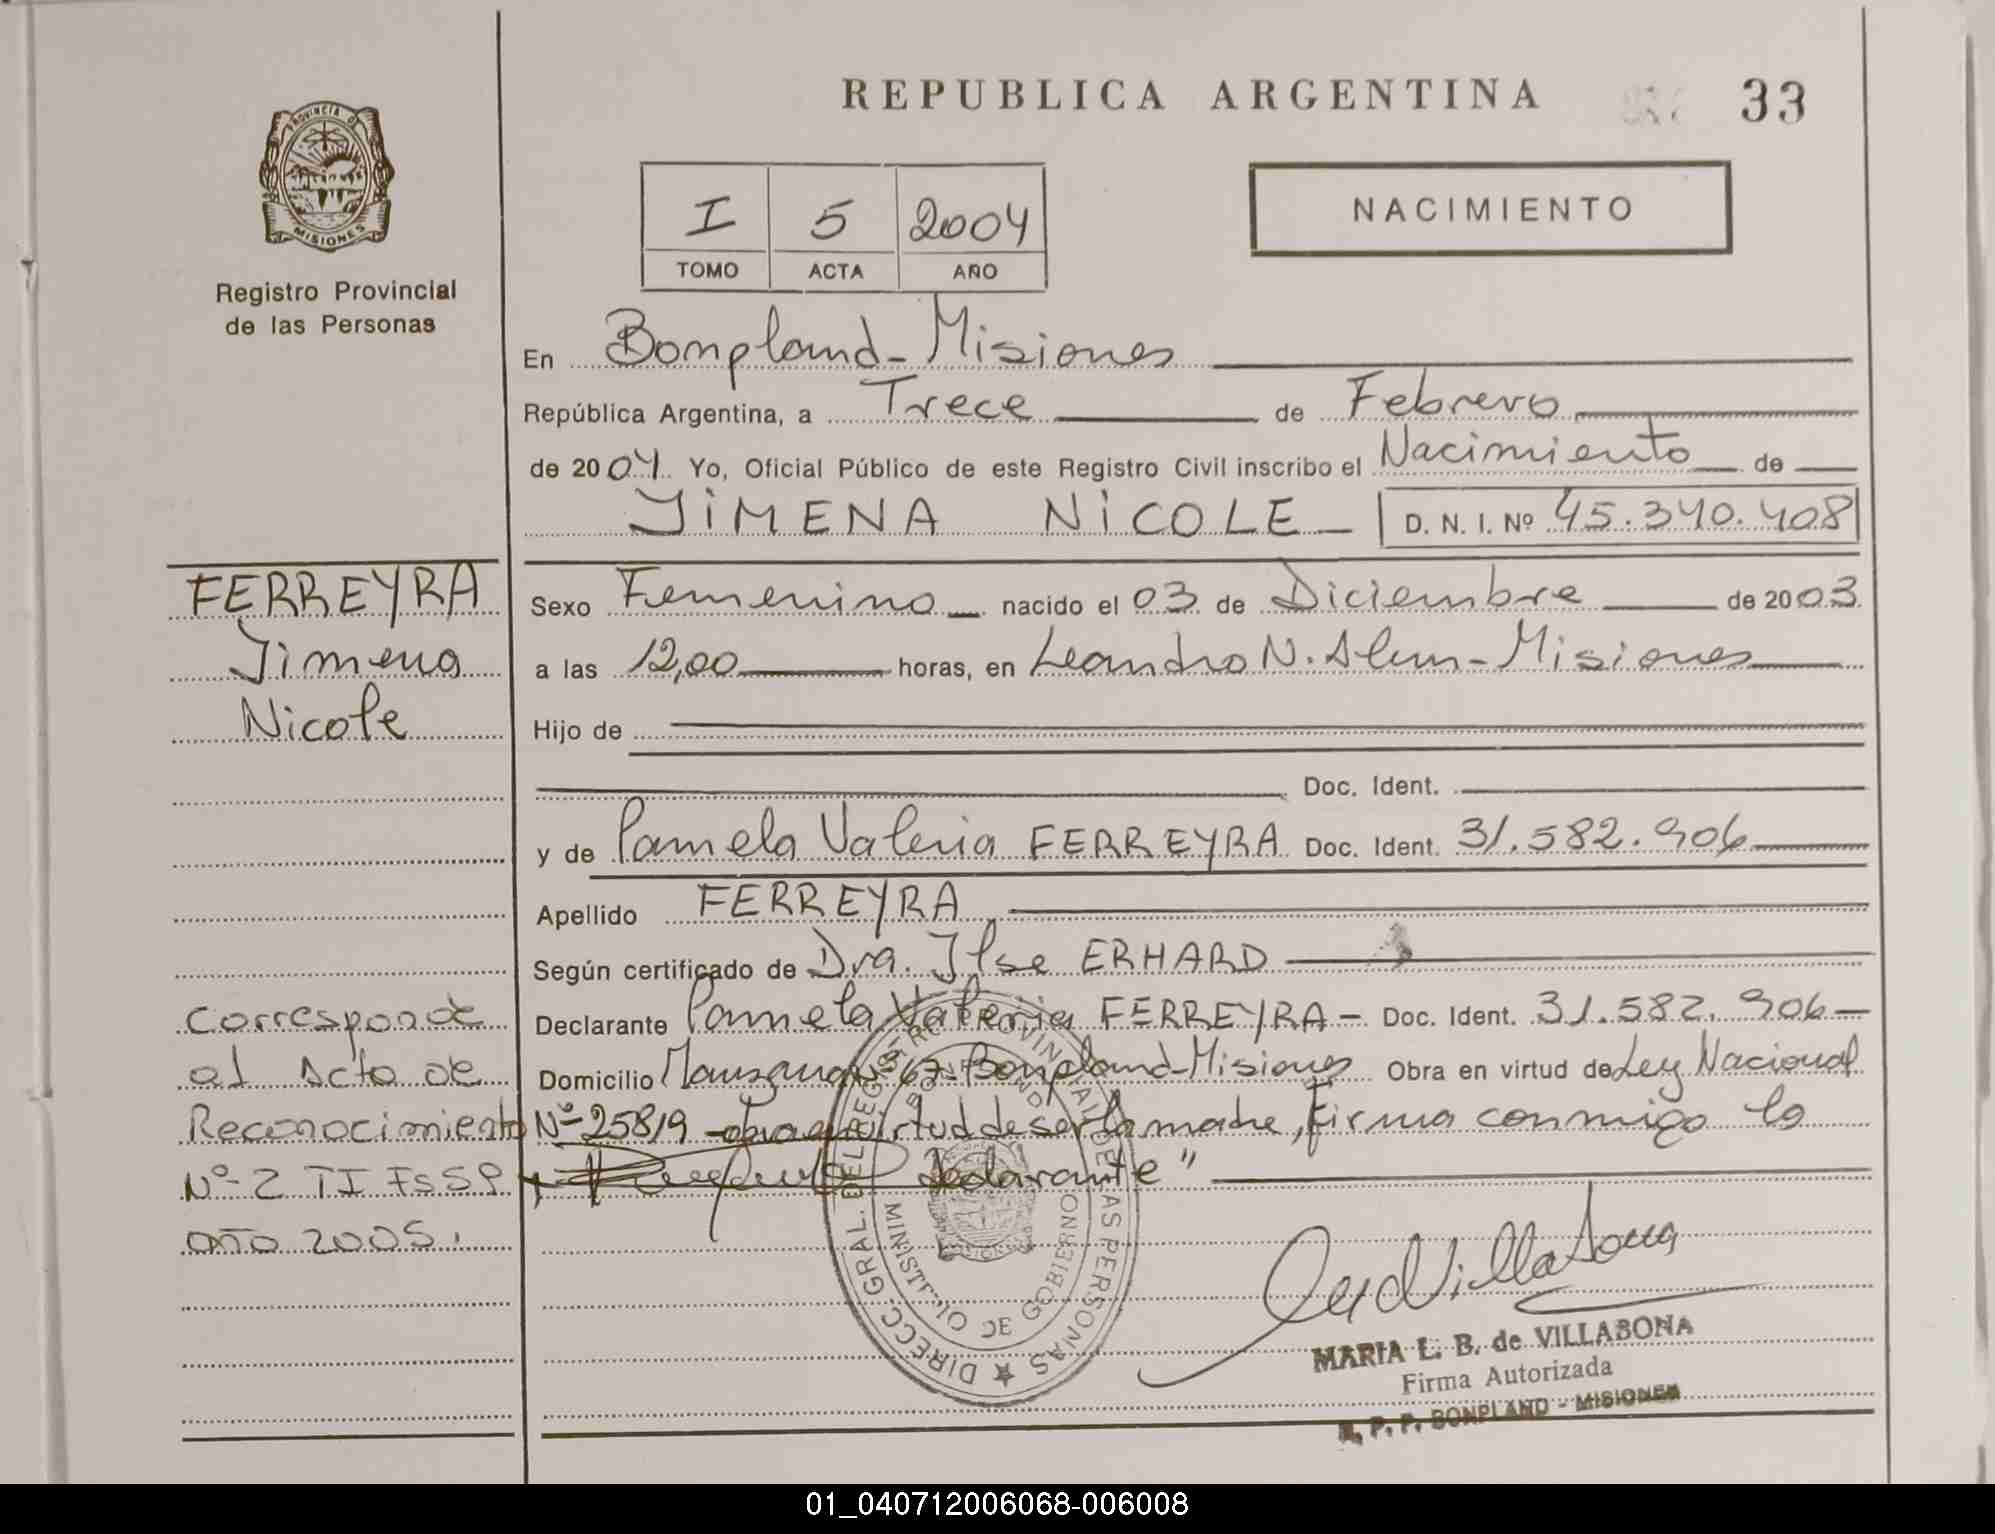 REPUBLICA ARGENTINA
33
PROVINCIA DE MISIONES
Registro Provincial
de las Personas
I 5 2004
TOMO ACTA AÑO
NACIMIENTO
En Bompland - Misiones
República Argentina, a Trece de Febrero
de 2004 Yo, Oficial Público de este Registro Civil inscribo el Nacimiento de
JIMENA NICOLE D. N. I. Nº 45.340.408
FERREYRA
Jimena
Nicole
Sexo Femenino nacido el 03 de Diciembre de 2003
a las 12,00 horas, en Leandro N. Alem - Misiones
Hijo de
Doc. Ident.
y de Pamela Valeria FERREYRA Doc. Ident. 31.582.906
Apellido FERREYRA
Según certificado de Dra. Ilse ERHARD
Declarante Pamela Valeria FERREYRA - Doc. Ident. 31.582.906
Domicilio Manzana 67 - Bompland - Misiones Obra en virtud de Ley Nacional
Nº 25819 - obra en virtud de ser la madre, firma conmigo la
declarante"
Corresponde
al Acta de
Reconocimiento
Nº 2 TI Fs 59
año 2005.
DIRECC. GRAL. DEL REGISTRO PROVINCIAL DE LAS PERSONAS
MINISTERIO DE GOBIERNO
MARIA L. B. de VILLABONA
Firma Autorizada
R. P. P. BONPLAND - MISIONES
01_040712006068-006008